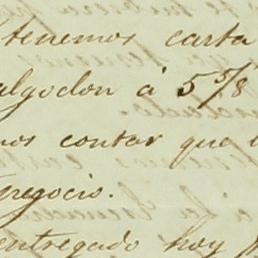 tenemos carta
algodon á 5 5/8
nos contar que
negocio.
entregado hoy